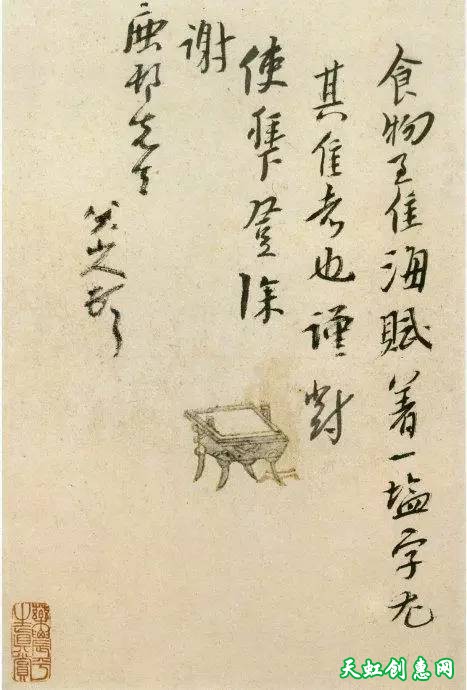 食物至佳海賦著一塩字尤
其佳者也謹對
使登除
謝
鹿邨先生
八大山人頓首
天虹创惠网